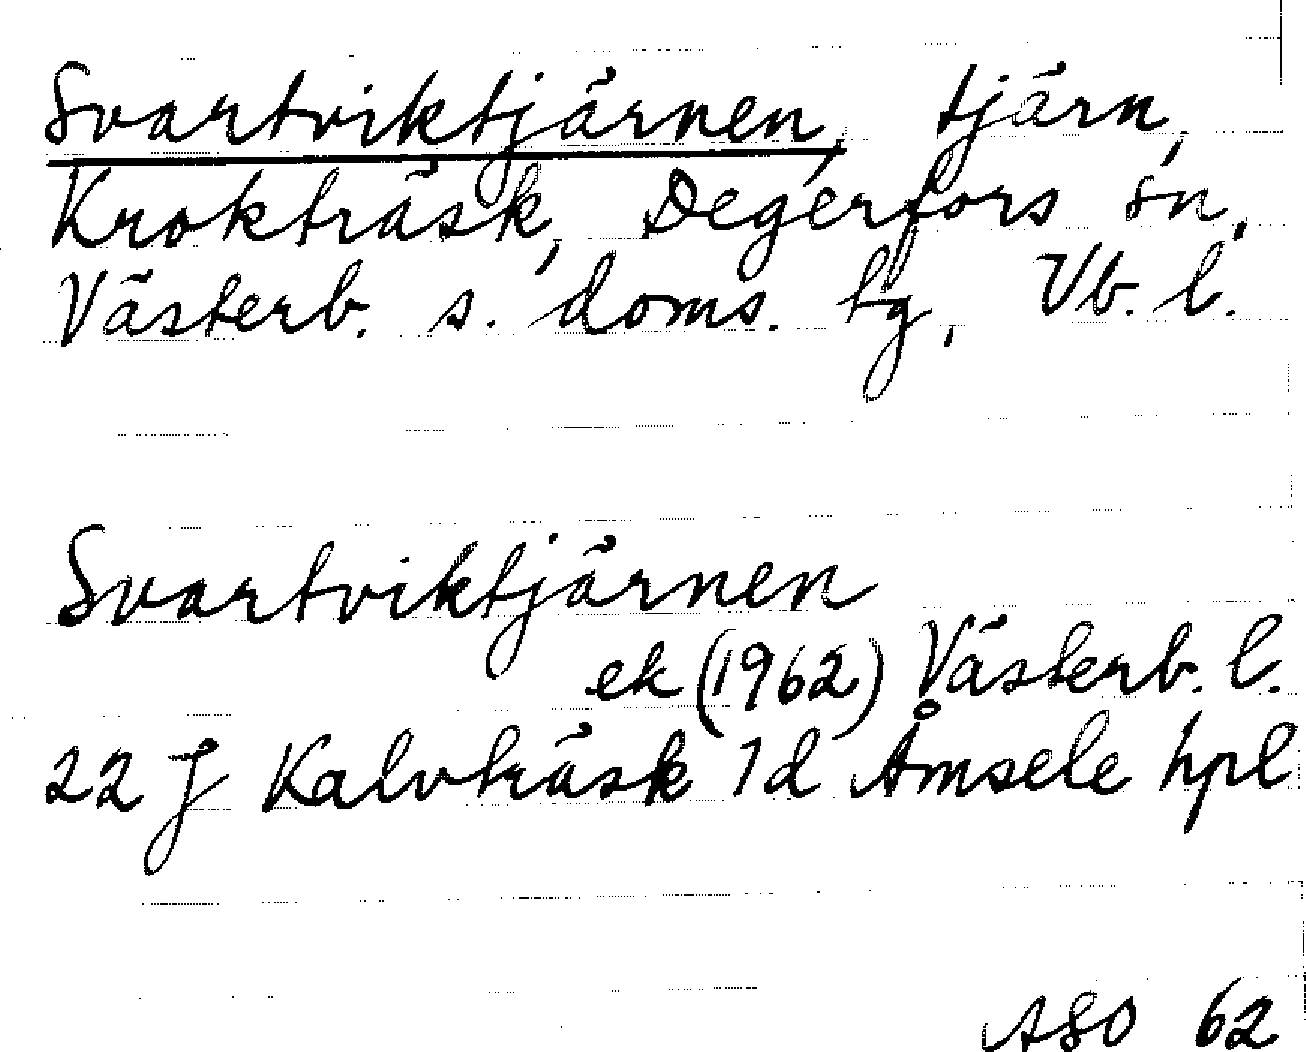 Svartviktjärnen, tjärn,
Krokträsk, Degerfors sn,
Västerb. s. doms. tg, Vb. l.
Svartviktjärnen
ek (1962) Västerb. l.
22 J Kalvträsk 1d Åmsele hpl
ASO 62